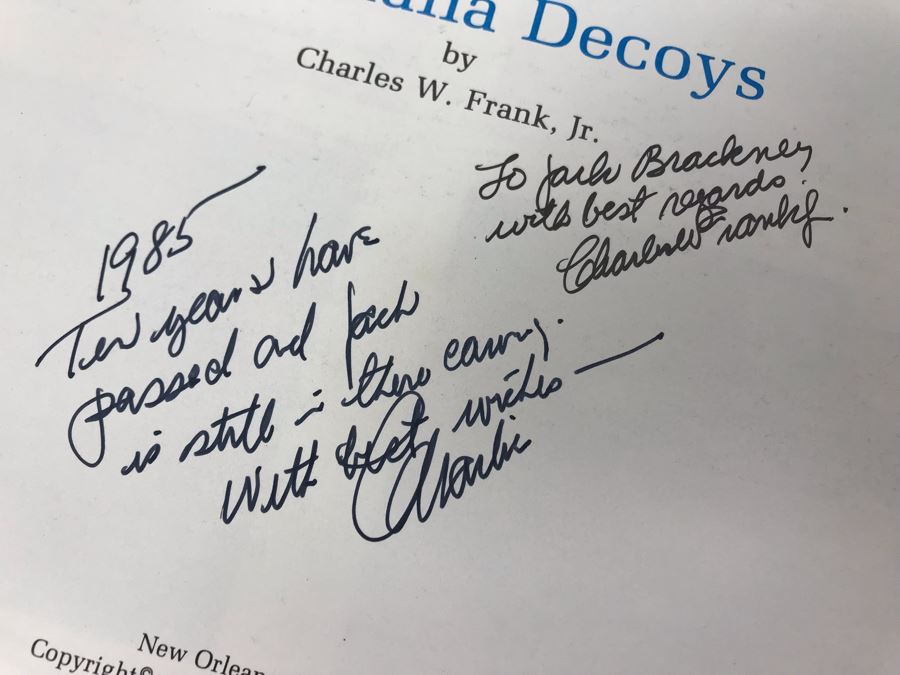 ana Decoys
by
Charles W. Frank, Jr.
To Jack Brackney
with best regards.
Charles W Frank Jr.
1985
Ten years have
passed and Jack
is still in there
With best wishes
Charlie
New Orlean
Copyright©